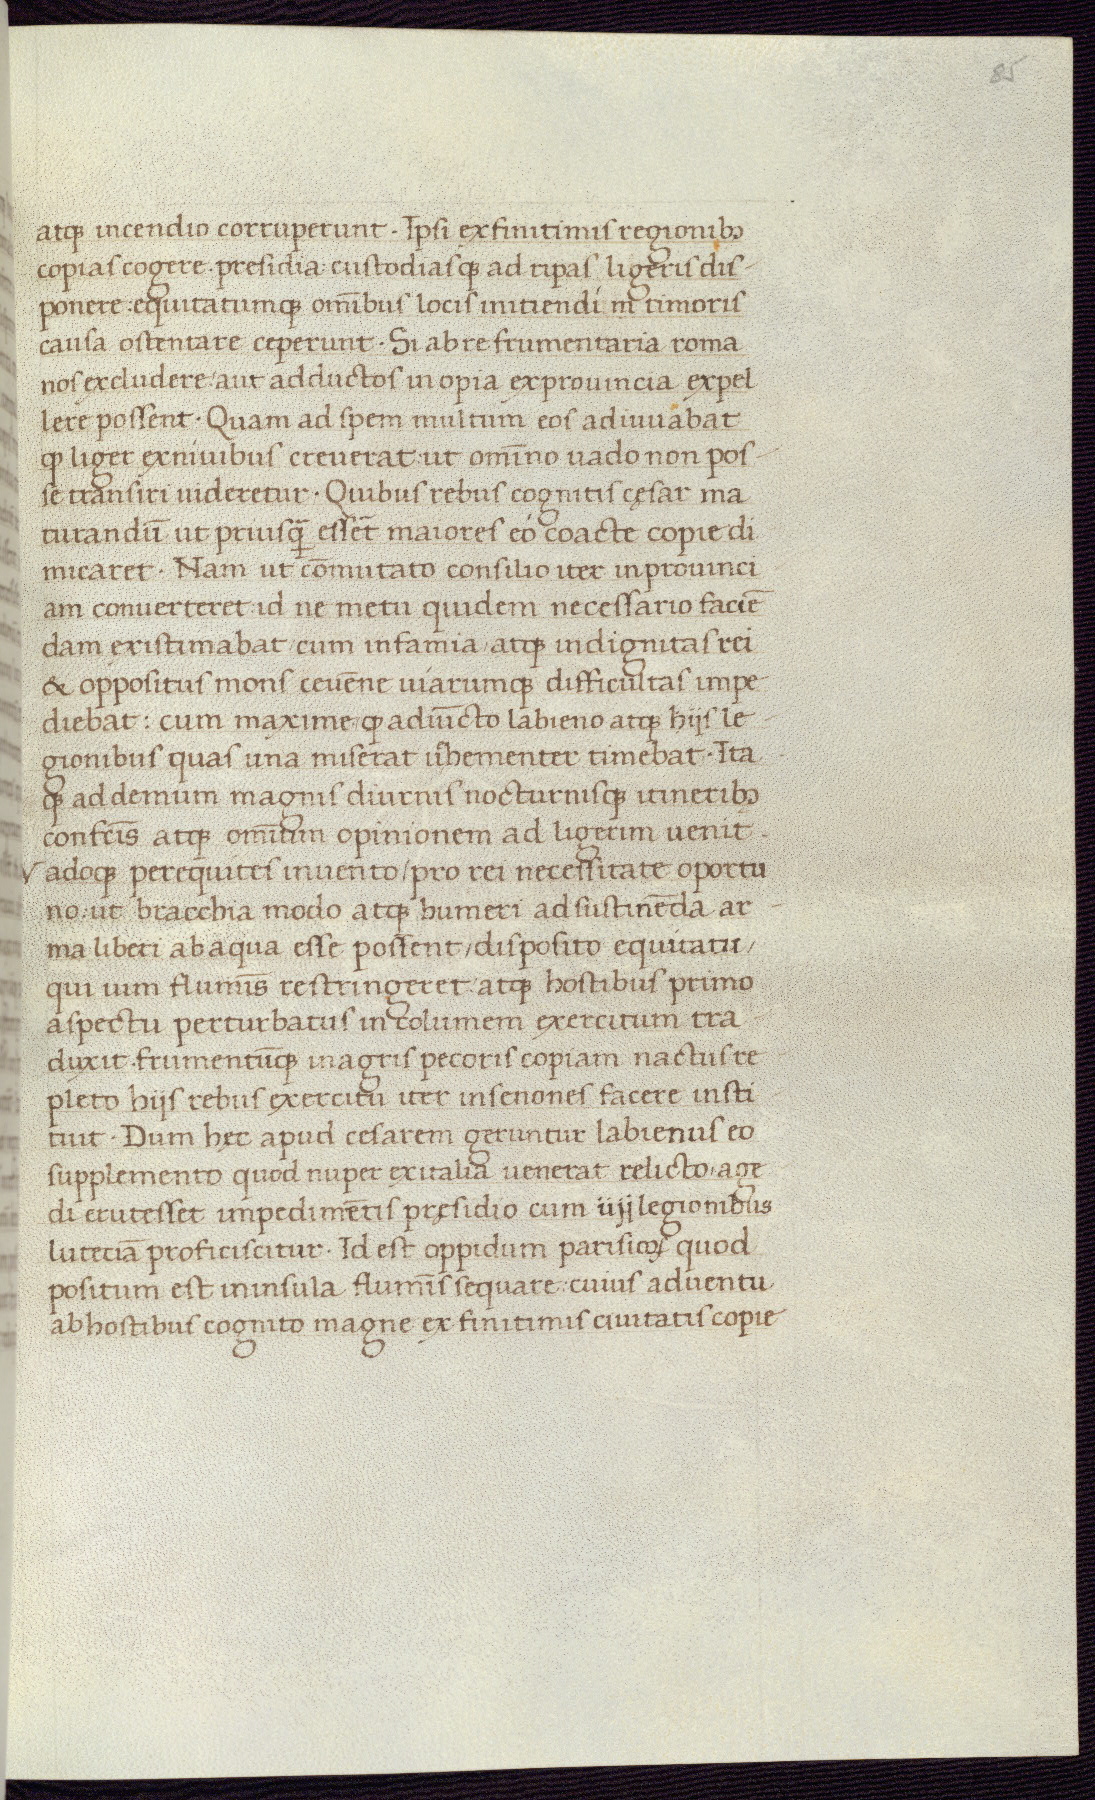 85
atqꝫ incendio corruperunt · Ipsi ex finitimis regionibꝫ
copias cogere · presidia custodiasqꝫ ad ripas ligeris dis-
ponere : equitatumqꝫ om̄ibus locis initiendi m̄ timoris
causa ostentare ceperunt · Si ab re frumentaria roma
nos excludere / aut adductos in opia ex prouincia expel
lere possent · Quam ad spem multum eos adiuuabat
ꝙ liger ex niuibus creuerat : ut om̄ino uado non pos-
se transiri uideretur · Quibus rebus cognitis cęsar ma
turandū ut priusqꝫ̄ esset̄ maiores eó coacte copie di
micaret · Nam ut cōmutato consilio iter in prouinci
am conuerteret : id ne metu quidem necessario faciē
dam existimabat / cum infamia / atqꝫ indignitas rei
& oppositus mons ceuēne uiarumqꝫ difficultas impe
diebat : cum maxime ꝙ adiūcto labieno atqꝫ hijs le-
gionibus quas una miserat ūhementer timebat · Ita
qꝫ ad demum magnis diurnis nocturnisqꝫ itineribꝫ
confcīs atqꝫ om̄ium opinionem ad ligerim uenit -
V adoqꝫ per equites inuento / pro rei necessitate oportu
no : ut bracchia modo atqꝫ humeri ad sustinēda ar-
ma liberi ab aqua esse possent / disposito equitatu /
qui uim flumīs restringeret / atqꝫ hostibus primo
aspectu perturbatus in columem exercitum tra-
duxit · frumentūqꝫ in agris pecoris copiam nactus re
pleto hijs rebus exercitu iter in senones facere insti
tuit · Dum hęc apud cesarem geruntur labienus eo
supplemento quod nuper ex italia uenerat relicto · age
di crutesset impedimētis pręsidio cum iiij legionibus
luteciā proficiscitur · Id est oppidum parisioꝝ quod
positum est in insula flumīs sequare : cuius aduentu
ab hostibus cognito magne ex finitimis ciuitatis copie